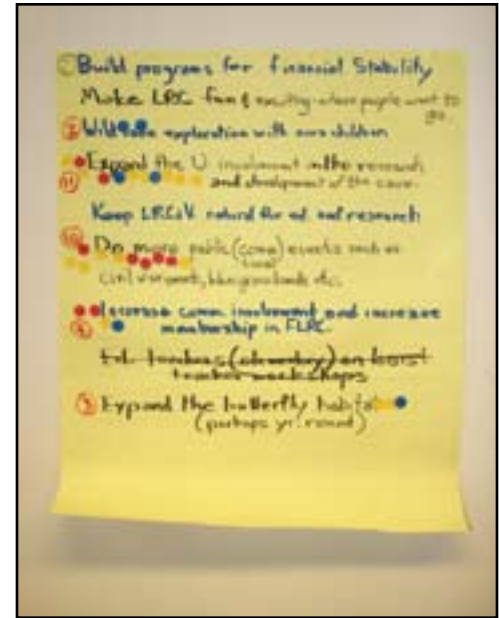 Build programs for Financial Stability
Make LRC fun & exciting-where people want to
go.
exploration with own children
Expand the U. involvement in the research
11 and development of the cave.
Keep natural for ed. and research
10 Do more public (comm) events such as
civil war event, bluegrass bands etc.
Increase comm. involvement and increase
membership in FLRC.
Ed. teachers
teacher workshops
3 Expand the butterfly habitat
(perhaps yr. round)